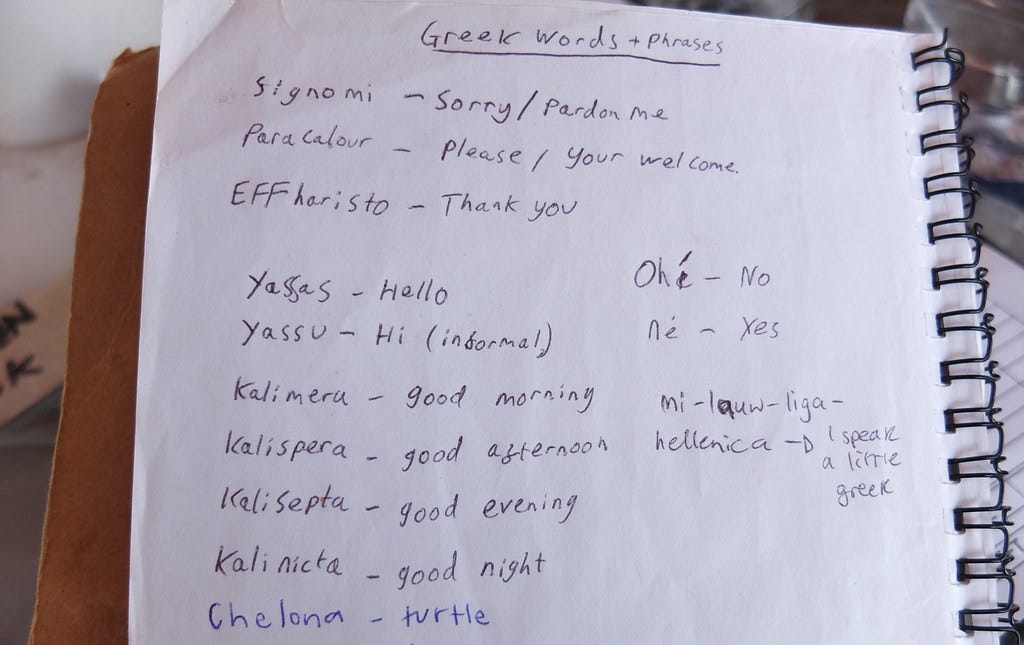 Greek words + Phrases
Signomi - Sorry / Pardon me
Paracalour - Please / Your welcome.
EFFharisto - Thank you
Yassas - Hello
Yassu - Hi (informal)
Kalimera - good morning
Kalispera - good afternoon
Kalisepta - good evening
Kalinicta - good night
Chelona - turtle
Ohé - No
né - Yes
mi-lauw-liga-
hellenica → I speak
a little
greek